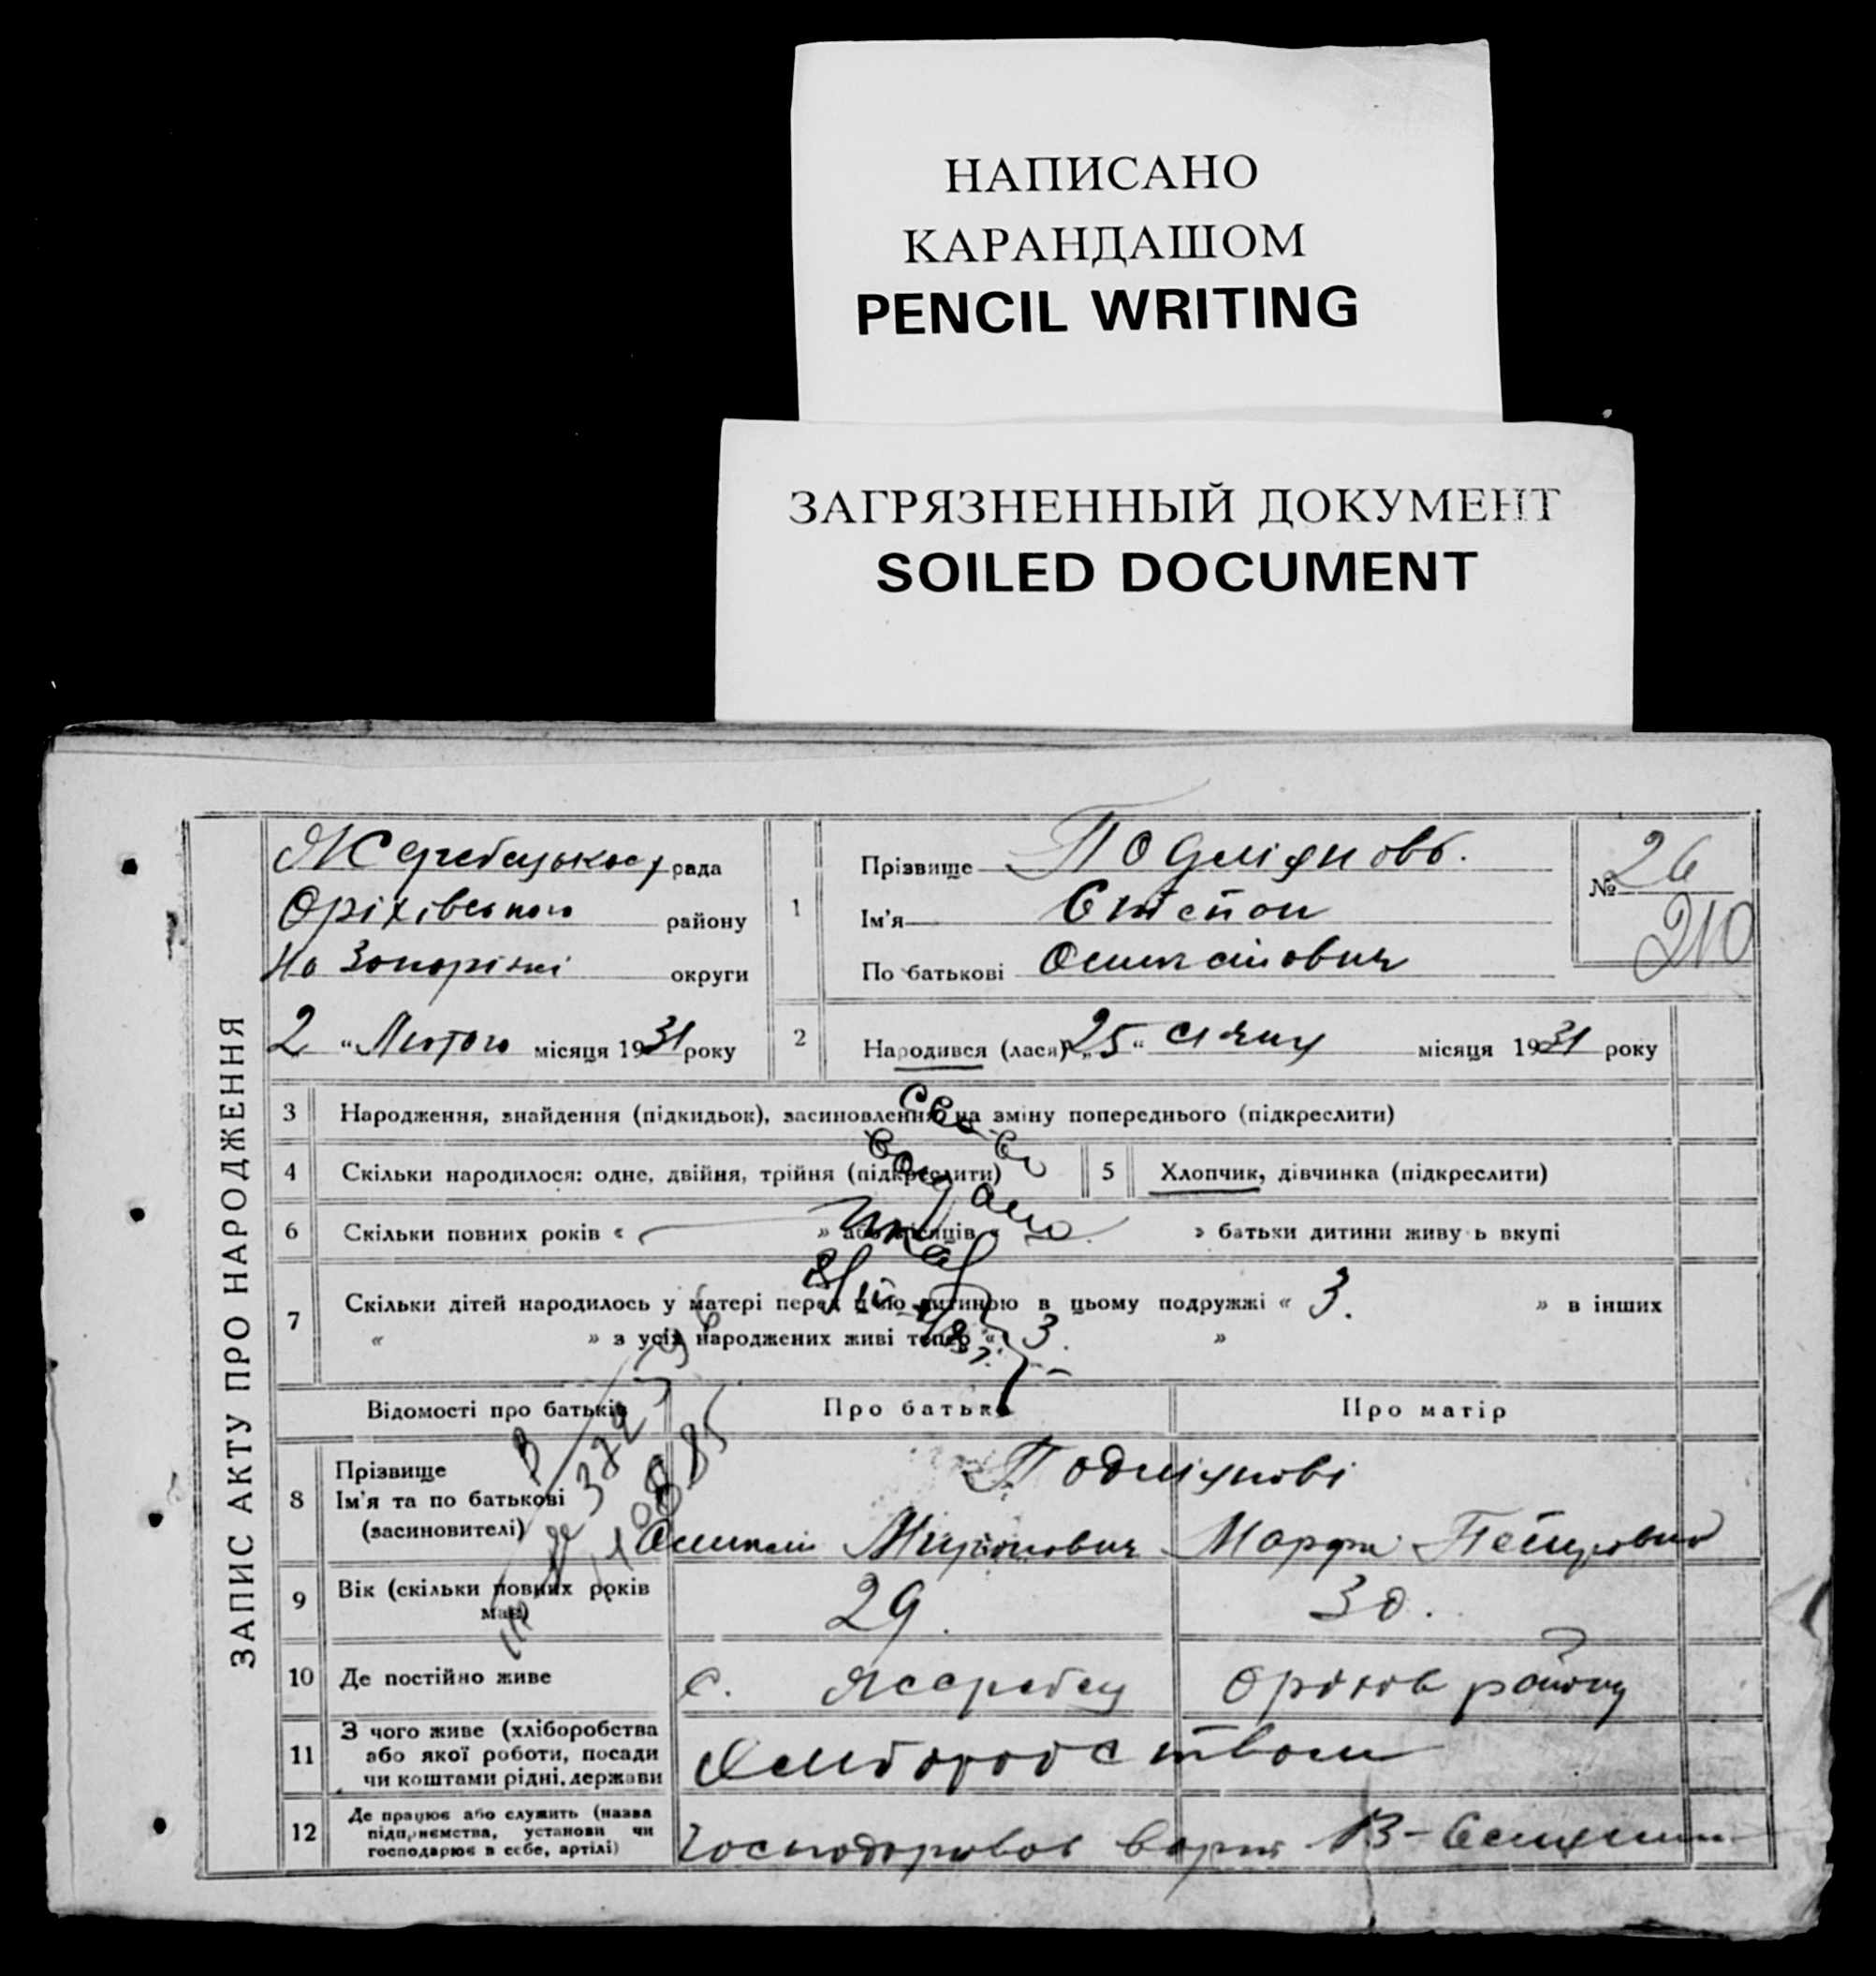 НАПИСАНО
КАРАНДАШОМ
PENCIL WRITING
ЗАГРЯЗНЕННЫЙ ДОКУМЕНТ
SOILED DOCUMENT
ЗАПИС АКТУ ПРО НАРОДЖЕННЯ
рада
Оріхівського району
На Запоріжжі округи
2 "Лютого місяця 1931 року
1
Прізвище
Ім'я Степан
По батькові
№ 26
210
2 Народився (лася) „25" січня місяця 1931 року
3 Народження, знайдення (підкидьок), засиновлення на зміну попереднього (підкреслити)
4 Скільки народилося: одне, двійня, трійня (підкреслити)
5 Хлопчик, дівчинка (підкреслити)
6 Скільки повних років « » або місяців « » батьки дитини живуть вкупі
7 Скільки дітей народилось у матері перед цією дитиною в цьому подружжі « 3. » в інших
« » з усіх народжених живі тепер « 3. »
Відомості про батьків
Про батька
Про матір
8 Прізвище
Ім'я та по батькові
(засиновителі)
Миронович Марфа Петровна
9 Вік (скільки повних років має) 29. 30.
10 Де постійно живе с. Жеребец Оріхів району
11 З чого живе (хліборобства
або якої роботи, посади
чи коштами рідні, держави
Хліборобством
12 Де працює або служить (назва
підприємства, установи чи
господарює в себе, артілі)